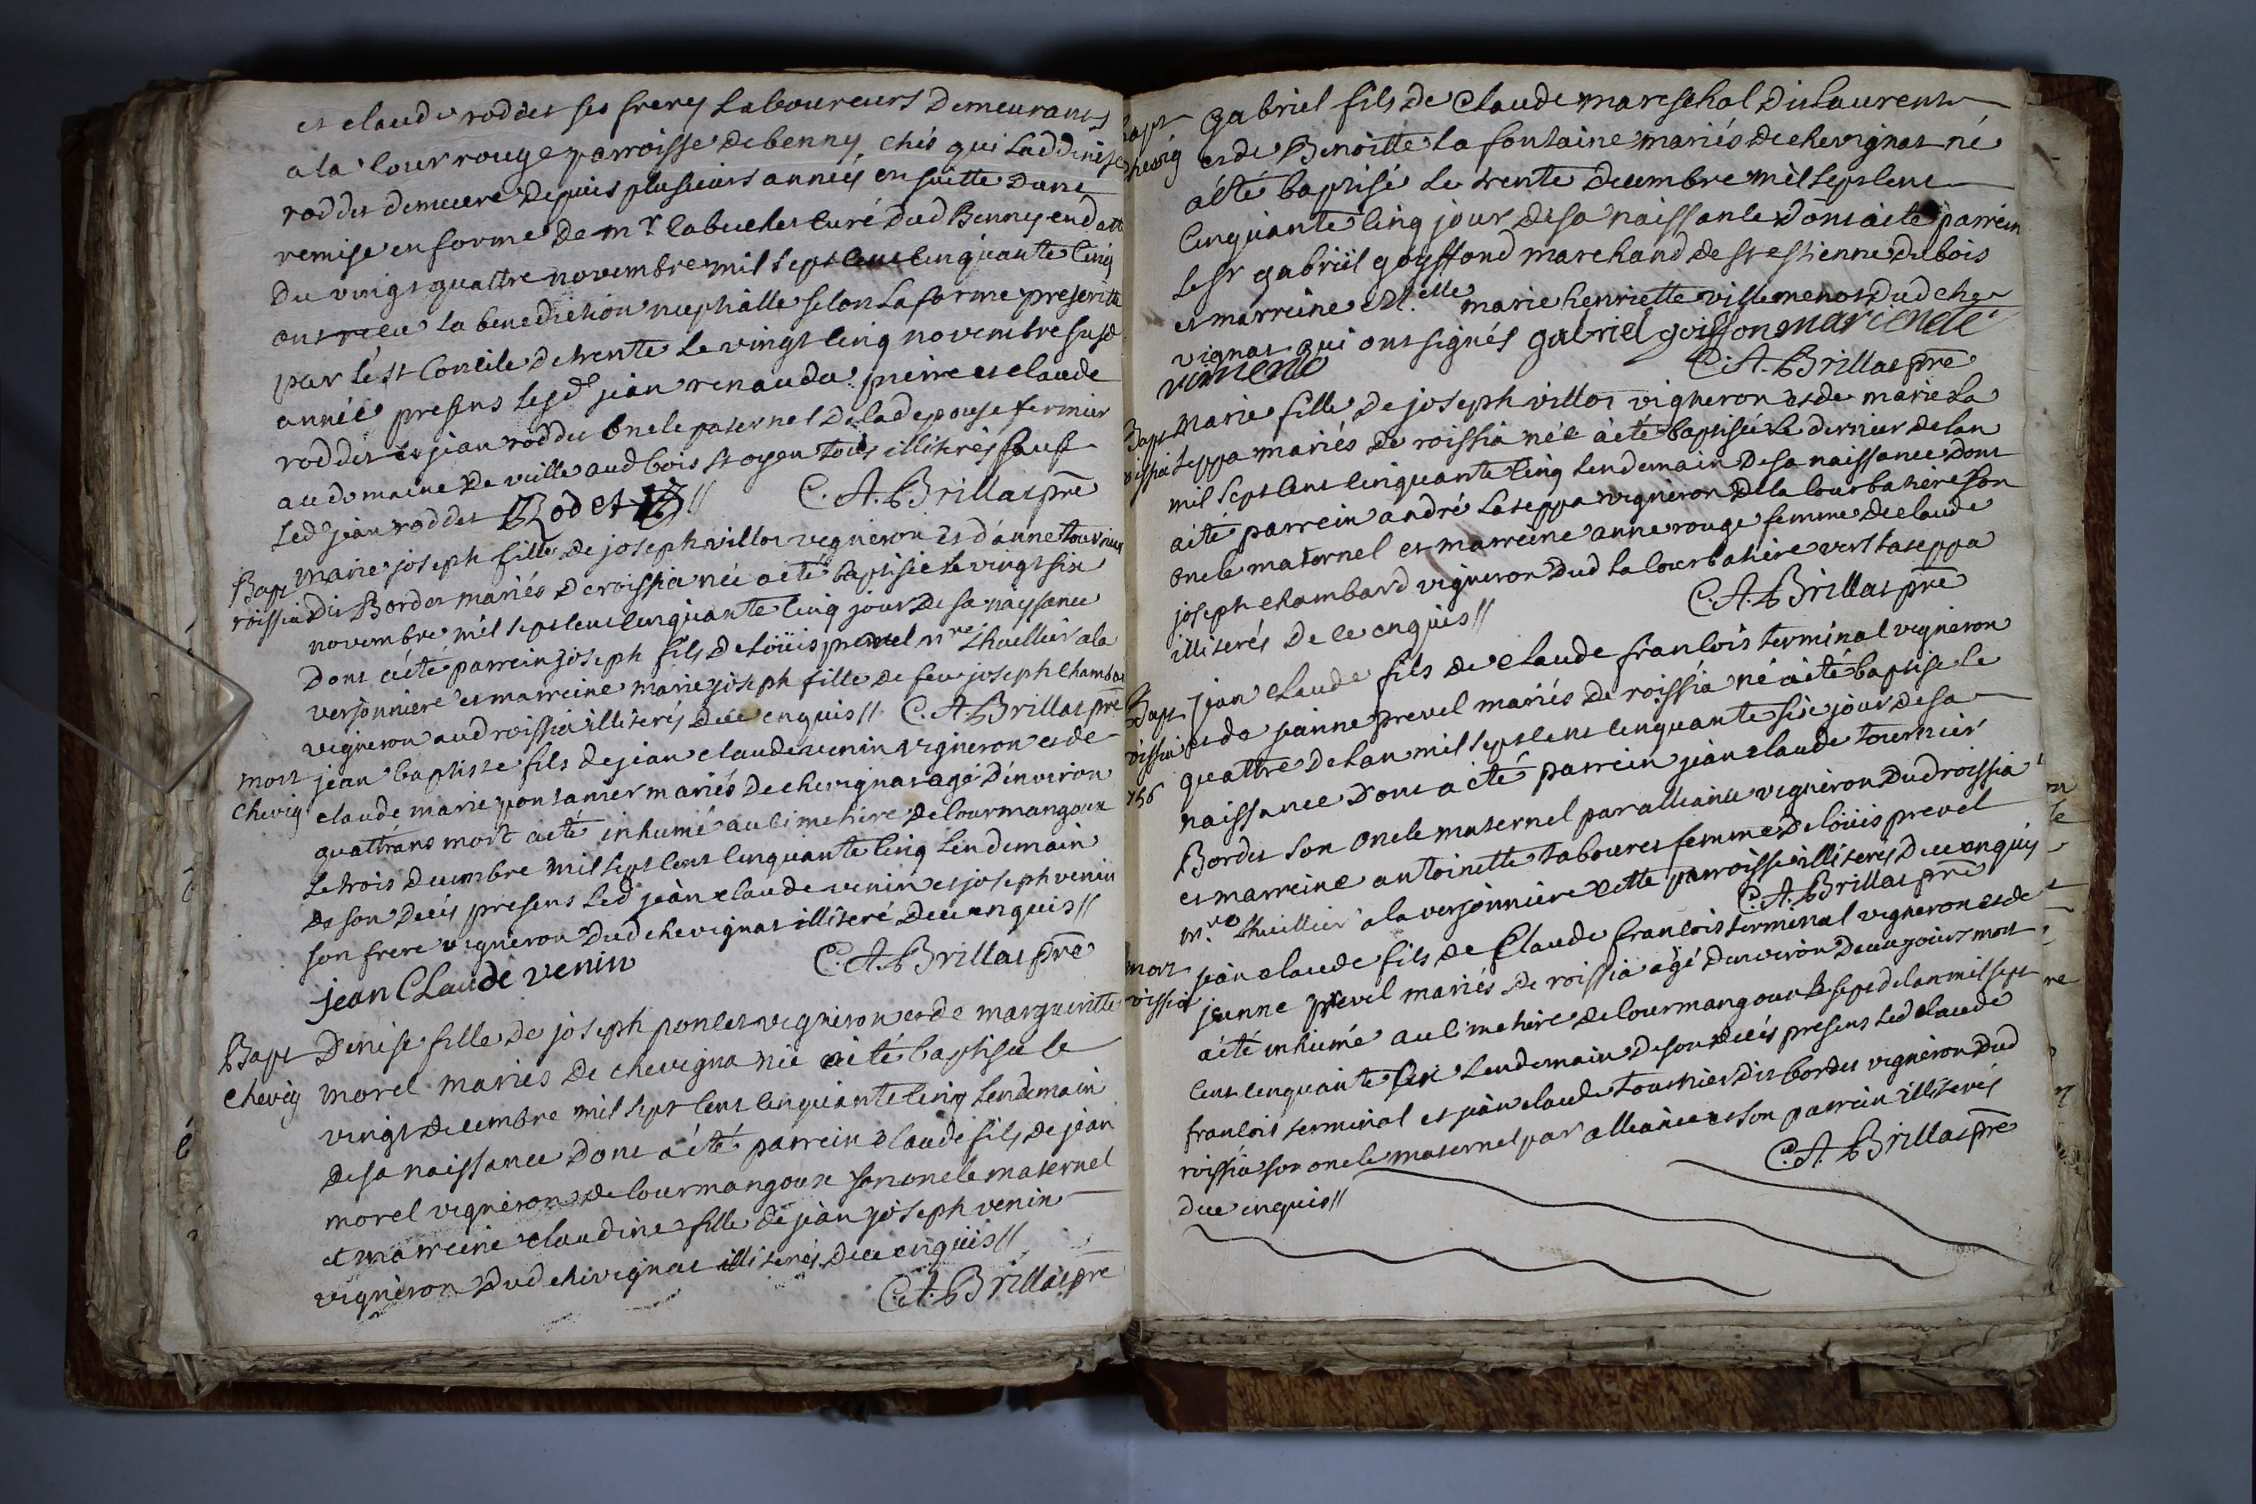 et claude roddet ses freres laboureurs demeurants
a la Cour rouge parroisse de benny, chés qui lad denise
roddet demeure depuis plusieurs années en suitte dune
remise en forme de mr. Cabuchet curé dud Benny en datte
du vingt quattre novembre mil sept cent cinquante cinq
ont recu la benediction nuptialle selon la forme prescritte
par le st Concile de trente le vingt cinq novembre susd
année presens lesd jean renaudu pierre et claude
roddet et jean roddet oncle paternel de lad epouse fermier
au domaine de ville aud bois st oyen tous illiterés sauf
led jean roddet Rodet // C. A. Brillat pre
Bapt marie joseph fille de joseph villot vigneron et d'anne tournier
roissia dit Bordet mariés de roissia née a été baptisée le vingt six
novembre mil sept cent cinquante cinq jour de sa naissance
Dont a été parrein joseph fils de Loüis prevel mre thuillier a la
versonniere et marreine marie joseph fille de feu joseph chambar
vigneron aud roissia illiterés de ce enquis // C. A. Brillat pre
mort jean baptiste fils de jean claude venin vigneron et de
chevig claude marie pontanier mariés de chevignat agé d'environ
quattr'ans mort a été inhumé au cimetiere de Courmangoux
Le trois decembre mil sept cent cinquante cinq lendemain
de son decés presens led jean claude venin et joseph venin
son frere vigneron dud chevignat illiteré de ce enquis //
jean CLaude venin C. A. Brillat pre
Bapt Denise fille de joseph poncet vigneron et de margueritte
chevig morel mariés de chevigna née a été baptisée le
vingt decembre mil sept cent cinquante cinq lendemain
de sa naissance dont a été parrein claude fils de jean
morel vigneron de Courmangoux son oncle maternel
et marreine claudine fille de jean joseph venin
vigneron dud chevignat illiterés de ce enquis //
C. A. Brillat pre
bapt gabriel fils de Claude mareschal dit Laurent
chevig et de Benoitte la fontaine mariés de chevignat né
a été baptisé le trente decembre mil sept cent
Cinquante cinq jour de sa naissance dont a été parrein
le sr gabriel goyffond marchand de st estienne du bois
et marreine dlle. marie henriette villemenot dud che
vignat qui ont signés gabriel goiffon
C. A. Brillat pre
Bapt marie fille de joseph villot vigneron et de marie La
roissia teppa mariés de roissia née a été baptisée le dernier de lan
mil sept cent cinquante cinq lendemain de sa naissance dont
a été parrein andré Lateppa vigneron de la Courbatiere son
oncle maternel et marreine anne rouge femme de claude
joseph chambard vigneron dud la Courbatiere vert Lateppa
illiterés de ce enquis // C. A. Brillat pre
Bapt jean claude fils de claude francois terminal vigneron
roissia et de jeanne prevel mariés de roissia né a été baptisé le
756 quattre de lan mil sept cent cinquante six jour de sa
naissance dont a été parrein jean claude tournier
Bordet son oncle maternel par alliance vigneron dud roissia
et marreine antoinette tabouret femme de loüis prevel
mre thuillier a la versonniere cette parroisse illiterés de ce enquis
C. A. Brillat pre
mort jean claude fils de Claude francois terminal vigneron et de
roissia jeanne prevel mariés de roissia agé d'environ deux jours mort
a été inhumé au cimetiere de Courmangoux le sept de lan mil sept
cent cinquante six lendemain de son decés presens led claude
francois terminal et jean claude tournier dit bordet vigneron dud
roissia son oncle maternel par alliance et son parrein illiterés
de ce enquis // C. A. Brillat pre